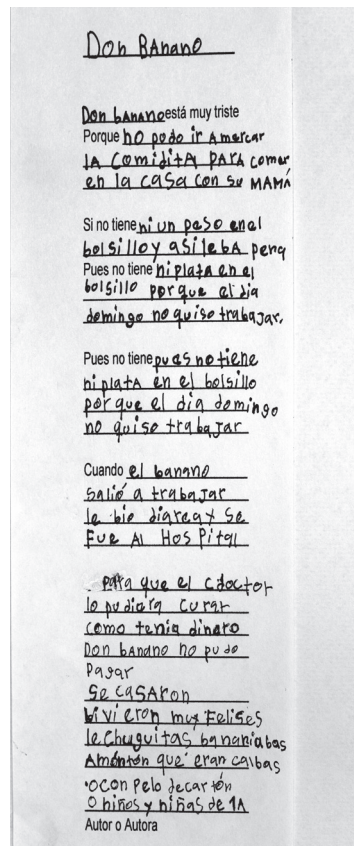 Don BANANO
Don bANANO está muy triste
Porque no podo ir Amercar
lA comiditA PARA comer
en la casa con su MAMÁ
Si no tiene ni un peso enel
bolsilloy asileba pena
Pues no tiene niplata en el
bolsillo porque el dia
domingo no quiso trabajar.
Pues no tiene pues no tiene
ni platA en el bolsillo
porque el dia domingo
no quiso trabajar
Cuando el banano
salió a trabajar
le bio diarea y se
FUE Al HosPital
para que el cdoctor
lo pudiara curar
como tenia dinaro
Don bANano no pudo
Pagar
Se cASARon
bivieron muy Felises
lechuguitas
Amontón que eran calbas
ocon pelo decartón
O niños y niñas de 1A
Autor o Autora